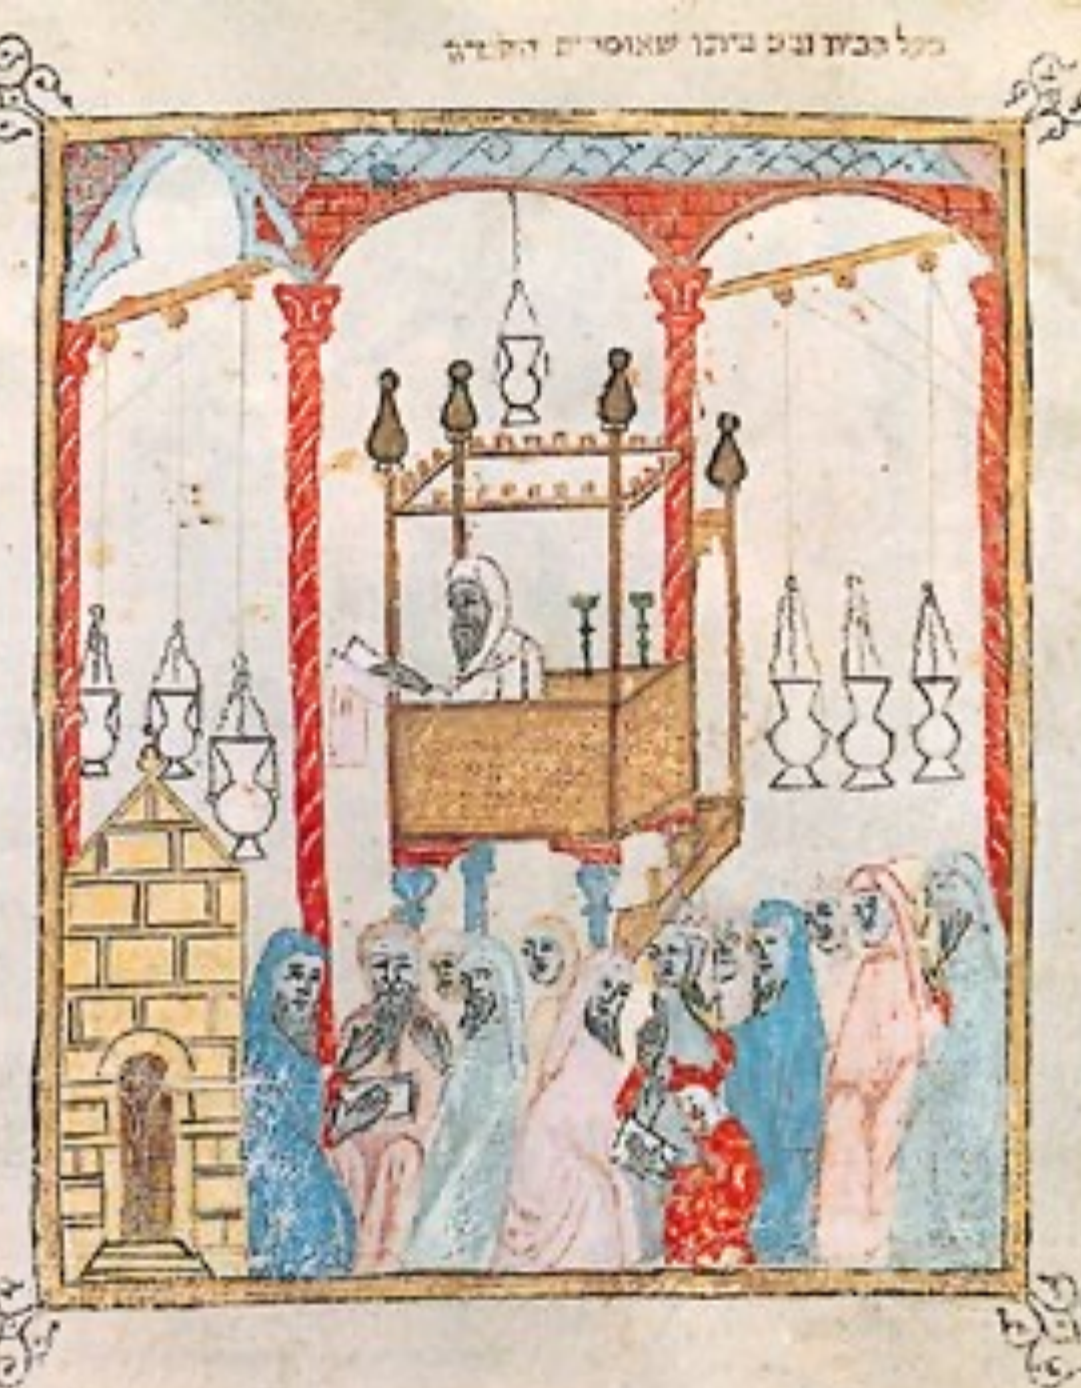 בעל הבית ובני ביתו שאומרים